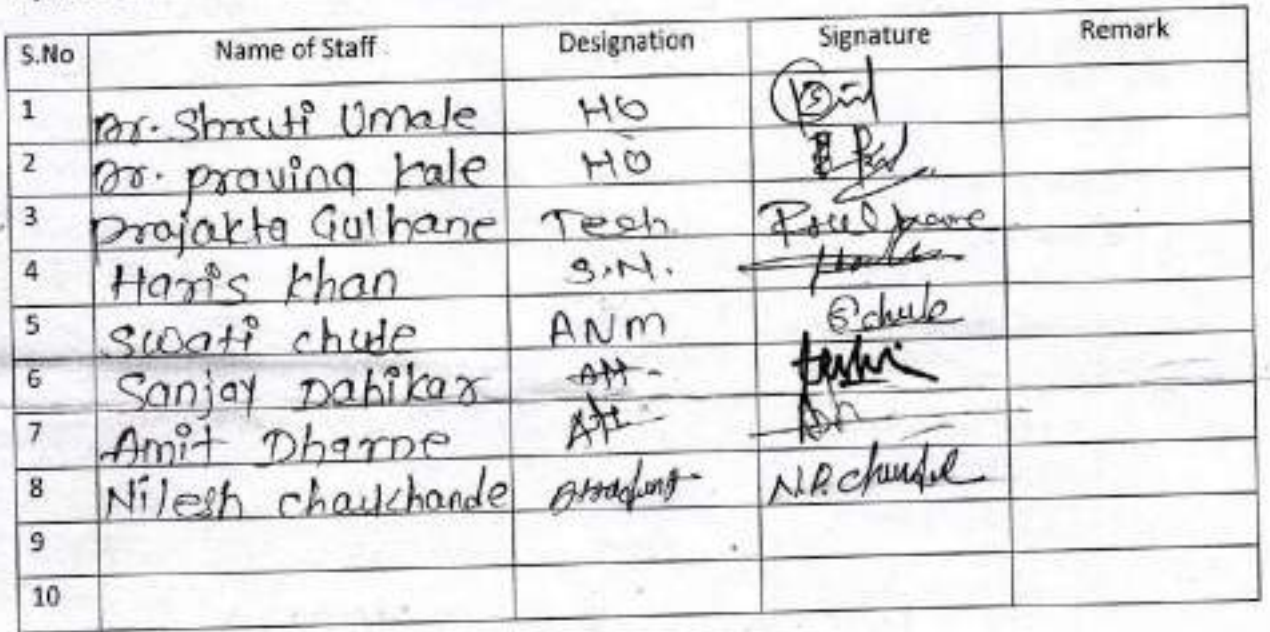 S.No Name of Staff Designation Signature Remark
1 Dr. Shruti Umale HO
2 Dr. pravina kale HO
3 Prajakta Gulhane Tech
4 Haris khan S.N.
5 Swati chute ANM Schute
6 Sanjay Dahikar Att
7 Amit Dharne Att
8 Nilesh chaukhande N.P.
9
10